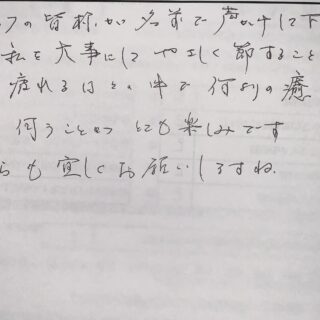 フの皆様が名前で声かけして下
私を大事にしてやさしく節すること
疲れる日々の中で何よりの癒
伺うことがとても楽しみです
らも宜しくお願いしますね.